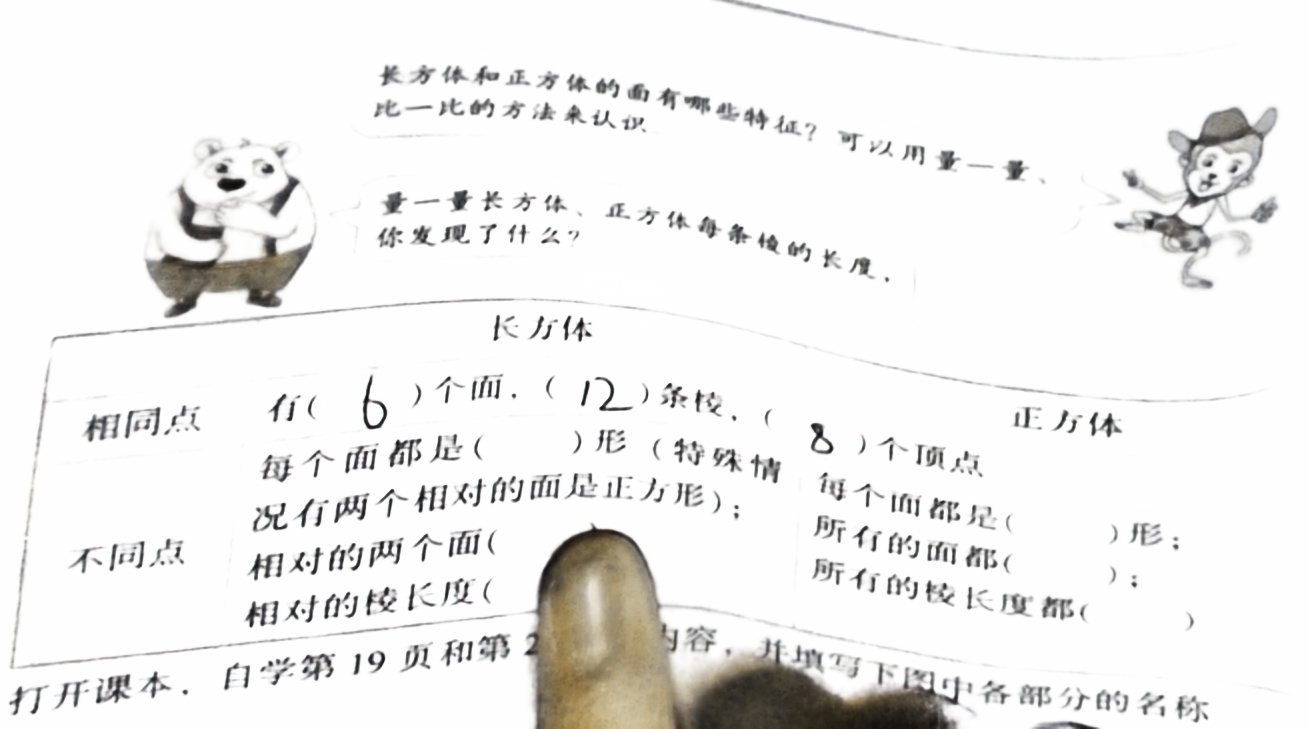 长方体和正方体的面有哪些特征？可以用量一量、
比一比的方法来认识
量一量长方体、正方体每条棱的长度，
你发现了什么？
长方体
正方体
相同点
有( 6 )个面，( 12 )条棱，( 8 )个顶点
不同点
每个面都是( )形（特殊情
况有两个相对的面是正方形)；
相对的两个面(
相对的棱长度(
每个面都是( )形；
所有的面都( )；
所有的棱长度都( )
打开课本，自学第 19 页和第 2 内容，并填写下图中各部分的名称